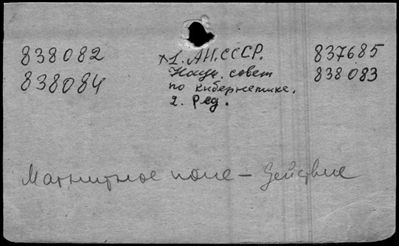 838082
838084
×1. АН СССР.
Научн. совет
по кибернетике.
2. Ред.
837685
838083
Магнитное поле – Действие